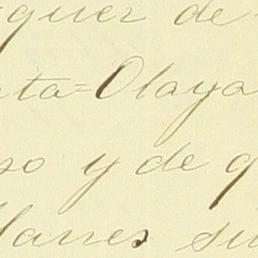 quer de
ta=Olaya
so y de q
anes su